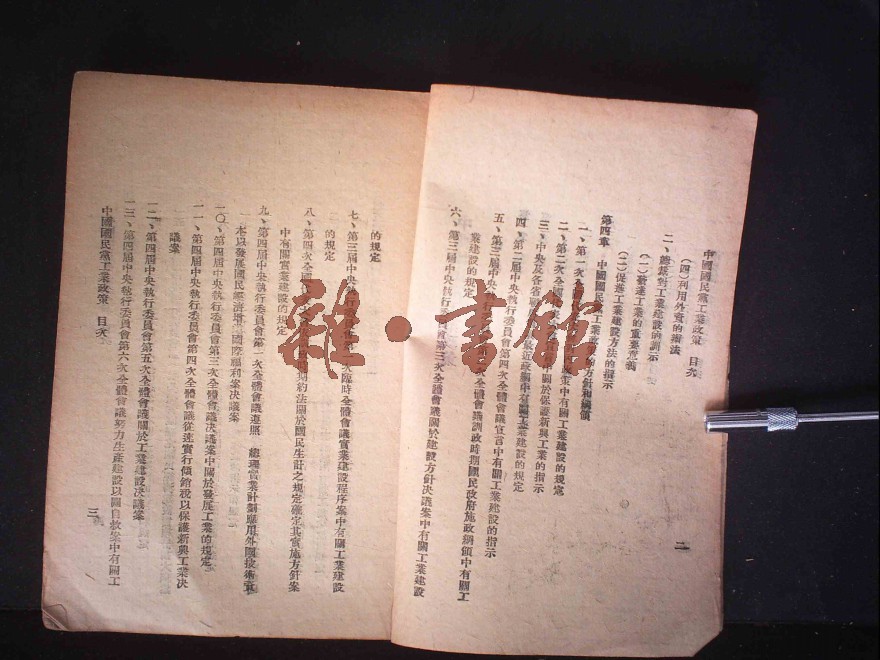 中國國民黨工業政策 目次
二
(四)利用外資的辦法
二、總裁對工業建設的訓示
(一)發達工業的重要意義
(二)促進工業建設方法的指示
第四章 中國國民黨工業政策的方針和綱領
一、第一次全國
二、第二次全國 政策中有關工業建設的規定
三、中央及各省 最近政綱中關於保護新興工業的指示
四、第二屆中央執行委員會第四次全體會議宣言中有關工業建設的指示
五、第三屆中央執行委員會第 次全體會議訓政時期國民政府施政綱領中有關工
業建設的規定
六、第三屆中央執行委員會第三次全體會議關於建設方針決議案中有關工業建設
的規定
七、第三屆中央執行委員會第 次臨時全體會議實業建設程序案中有關工業建設
的規定
八、第四次全國 約法關於國民生計之規定確定其實施方針案
中有關實業建設的規定
九、第四屆中央執行委員會第一次全體會議遵照 總理實業計劃應用外國技術資
本以發展國民經濟增 國際福利案決議案
一〇、第四屆中央執行委員會第三次全體會議決議案中關於發展工業的規定
一一、第四屆中央執行委員會第四次全體會議從速實行傾銷稅以保護新興工業決
議案
一二、第四屆中央執行委員會第五次全體會議關於工業建設決議案
一三、第四屆中央執行委員會第六次全體會議努力生產建設以圖自救案中有關工
中國國民黨工業政策 目次
三
雜·書館